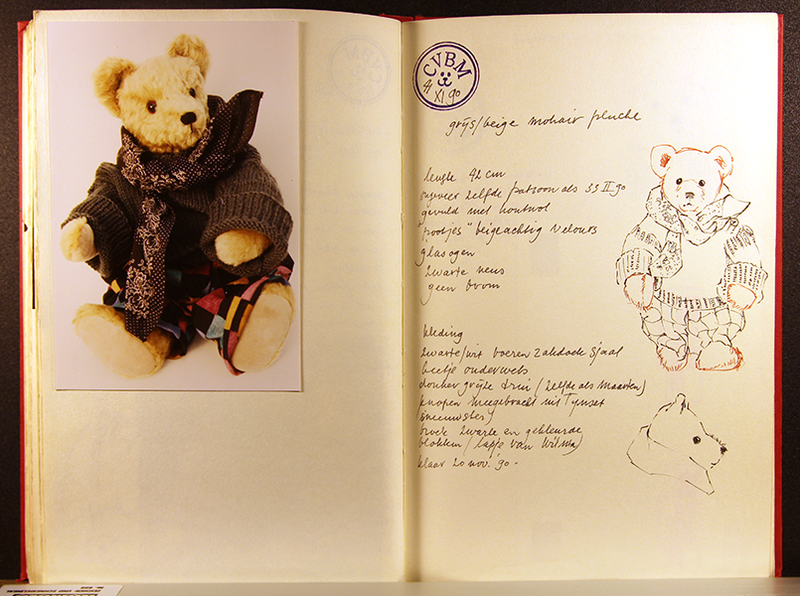 CVBM
4 XI 90
grijs/beige mohair pluche
lengte 42 cm
ongeveer zelfde patroon als 33 II 90
gevuld met houtwol
"pootjes" beigeachtig velours
glasogen
zwarte neus
geen brom
kleding
zwarte/wit boeren zakdoek sjaal
beetje onderwets
donker grijze trui (zelfde als maarten)
knopen meegebracht uit Tynset
broek zwarte en gekleurde
blokken (lapje van Wilma)
klaar 20 nov. '90 -